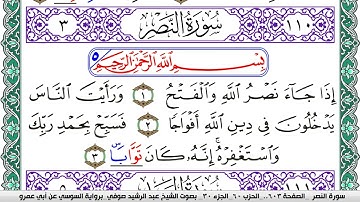 ٣ سُورَةُ النَّصْرِ ١١٠
بِسْمِ اللَّهِ الرَّحْمَٰنِ الرَّحِيمِ
إِذَا جَآءَ نَصْرُ اللَّهِ وَالْفَتْحُ ١ وَرَأَيْتَ النَّاسَ
يَدْخُلُونَ فِي دِينِ اللَّهِ أَفْوَاجًا ٢ فَسَبِّحْ بِحَمْدِ رَبِّكَ
وَاسْتَغْفِرْهُ إِنَّهُ كَانَ تَوَّابًا ٣
سورة النصر الصفحة ٦٠٣... الحزب ٦٠ الجزء ٣٠ بصوت الشيخ عبد الرشيد صوفي برواية السوسي عن أبي عمرو